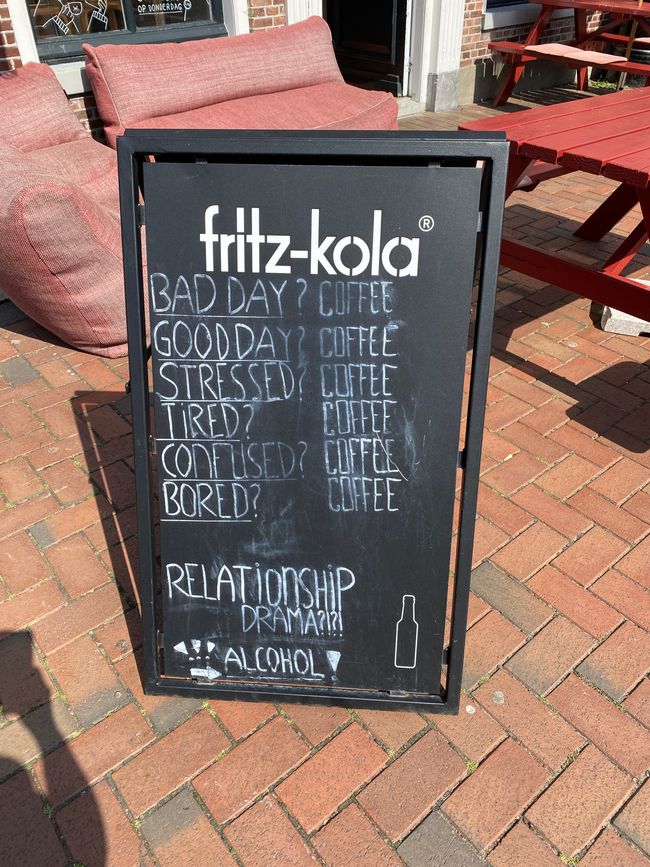 OP DONDERDAG
fritz-kola®
BAD DAY? COFFEE
GOODDAY? COFFEE
STRESSED? COFFEE
TIRED? COFFEE
CONFUSED? COFFEE
BORED? COFFEE
RELATIONSHIP
DRAMA?!?!
ALCOHOL